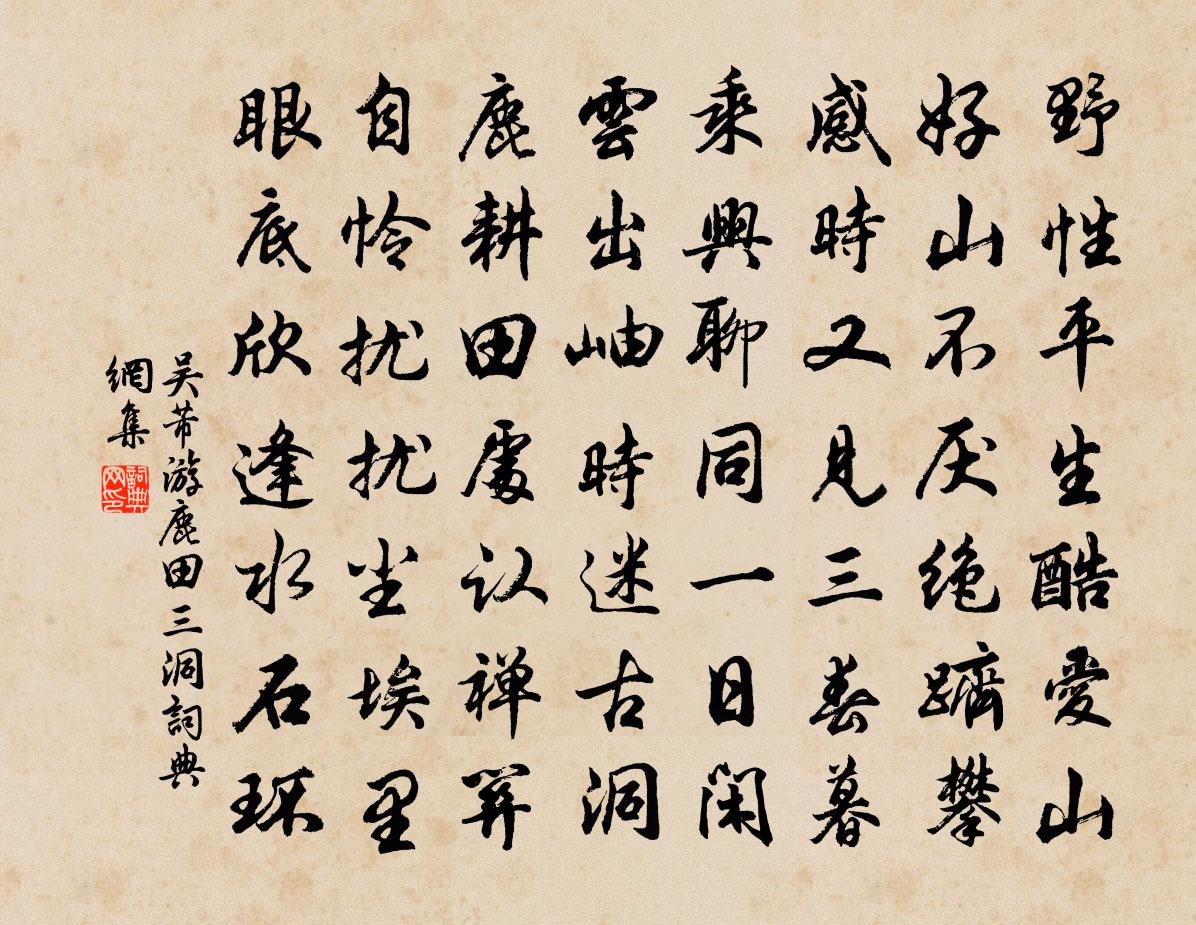 野性平生酷愛山
好山不厌绝躋攀
感時又見三春暮
乘興聊同一日閑
雲出岫時迷古洞
鹿耕田處认禅關
自怜扰扰尘埃里
眼底欣逢水石环
吴芾游鹿田三洞詞典
網集
詞典
网印